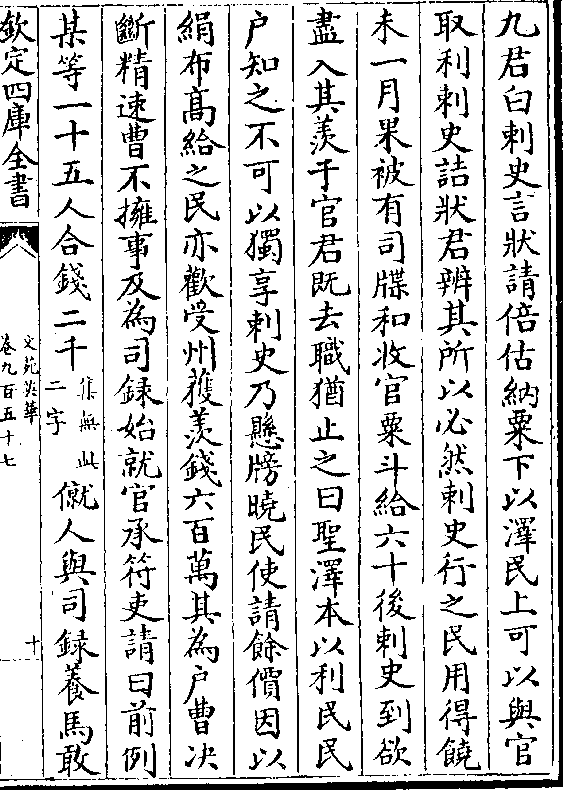 九君白刺史言狀請倍估納粟下以澤民上可以與官
取利刺史詰狀君辨其所以必然刺史行之民用得饒
未一月果被有司牒和收官粟斗給六十後刺史到欲
盡入其羨于官君既去職猶止之曰聖澤本以利民民
户知之不可以獨享刺史乃懸牓曉民使請餘價因以
絹布髙給之民亦歡受州獲羨錢六百萬其為户曹决
斷精速曹不擁事及為司録始就官承符吏請曰前例
某等一十五人合錢二千集無此二字僦人與司録養馬敢
欽定四庫全書
文苑英華
卷九百五十七
十